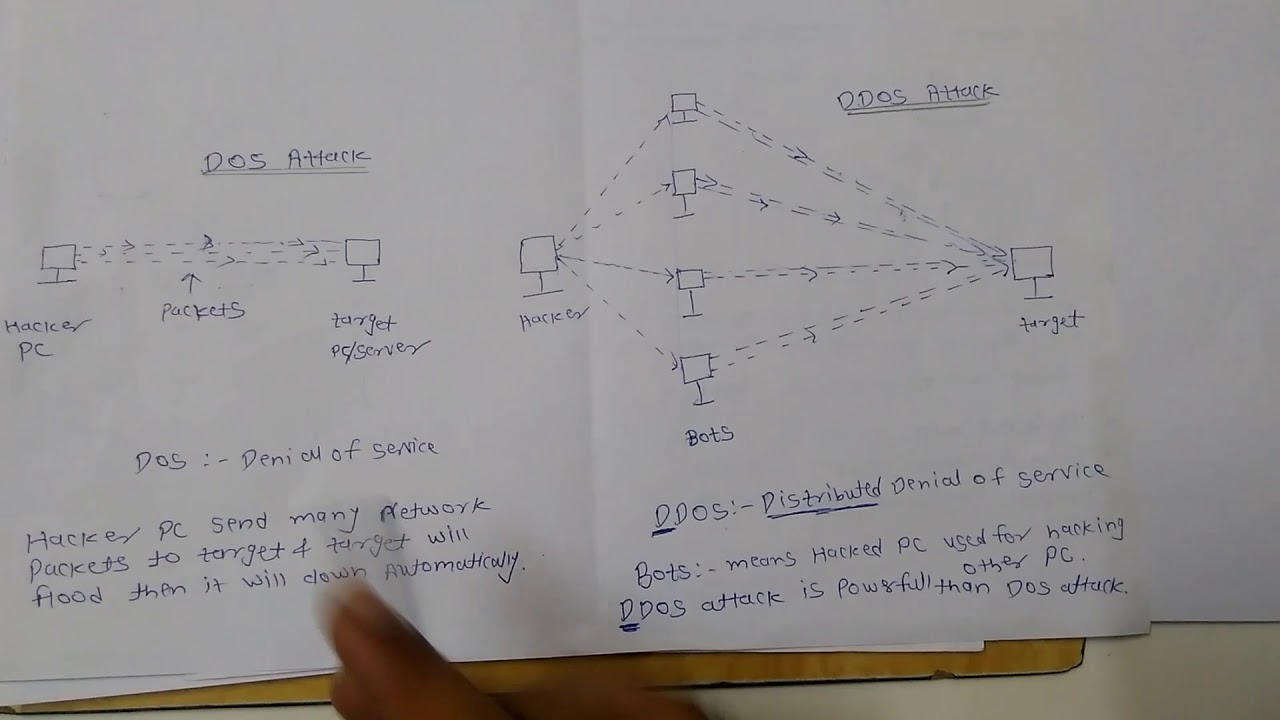 DOS Attack
Packets
Hacker
PC
target
PC/server
DOS :- Denial of service
Hacker PC send many Network
Packets to target & target will
flood then it will down Automatically.
DDOS Attack
Hacker
target
Bots
DDOS:- Distributed Denial of service
Bots:- means Hacked PC used for hacking
other PC.
DDOS attack is Powerfull than DOS attack.